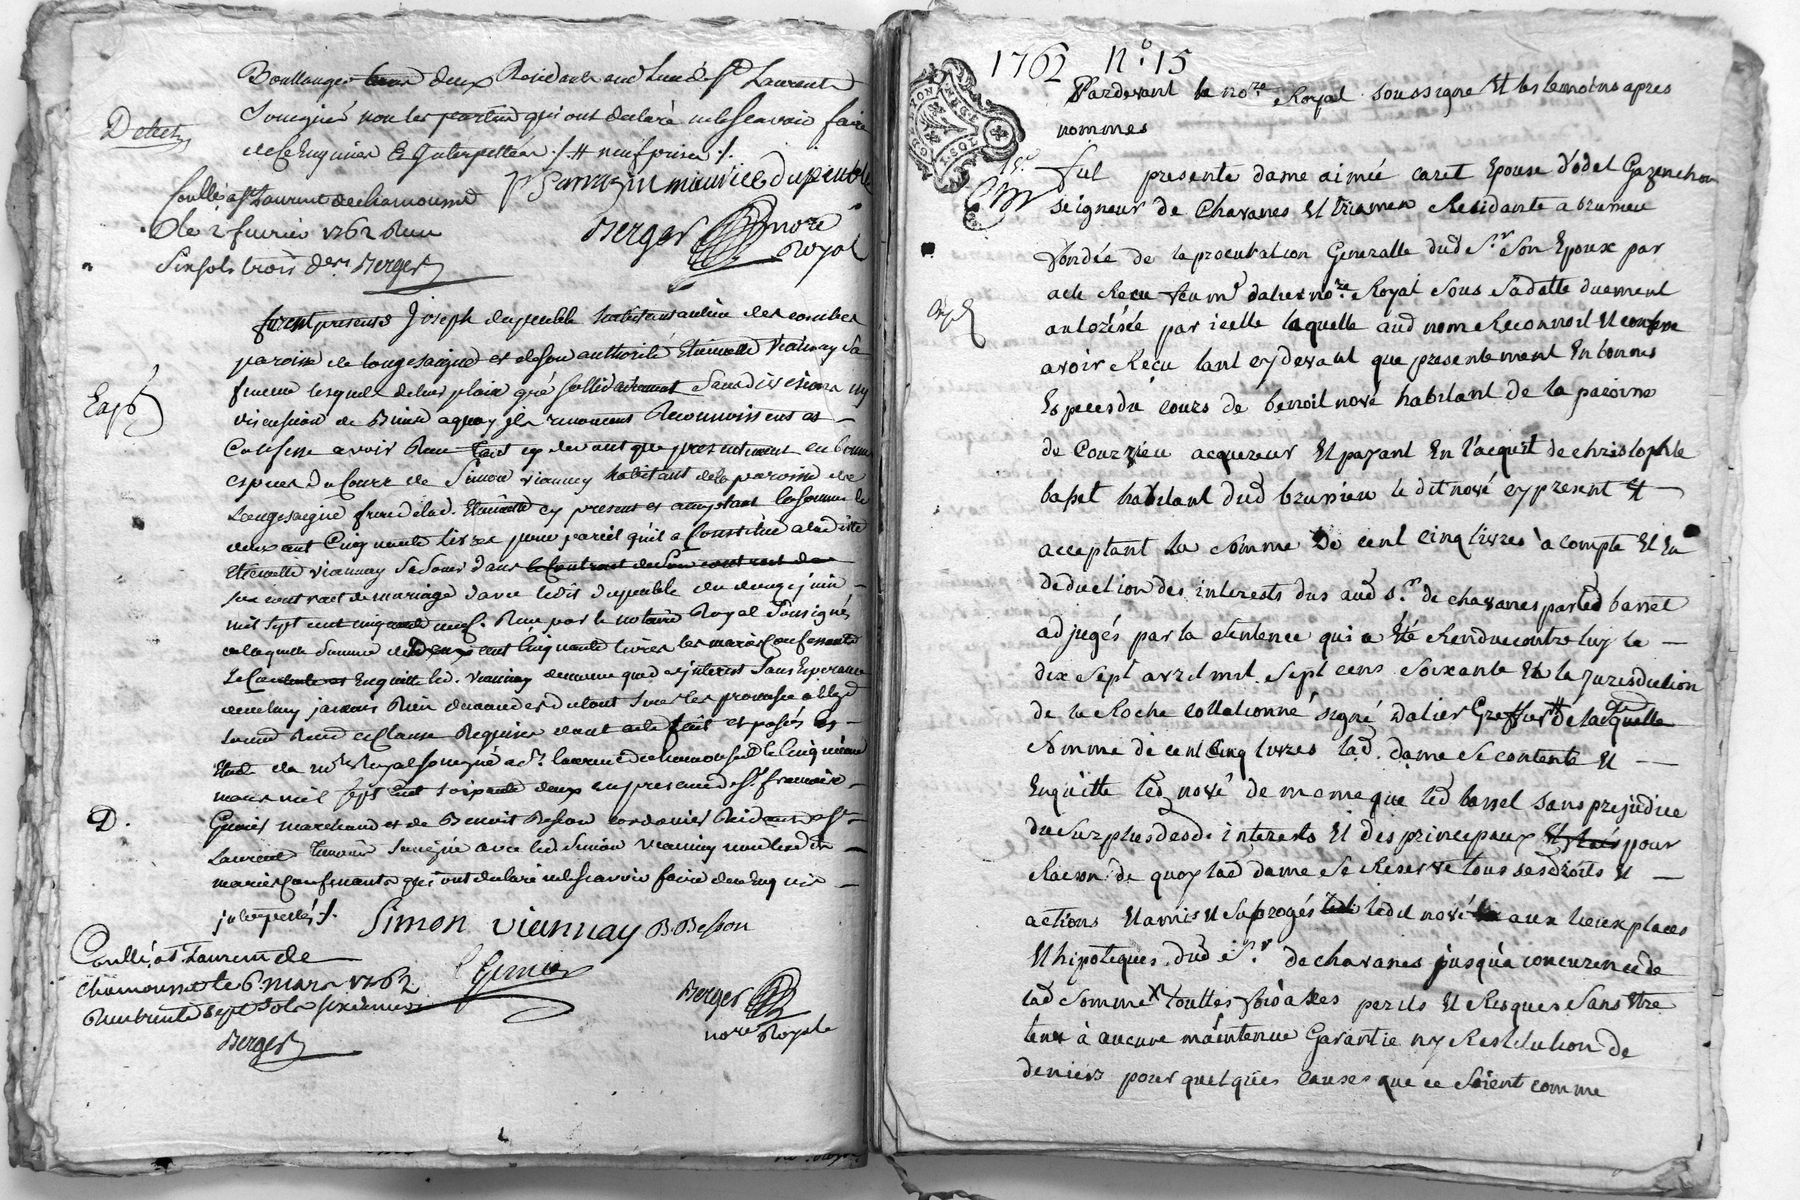 Boullanger deux Residants aud lieu de St Laurent
Soussignés non les parties qui ont declaré ne scavoir faire
de ce Enquises & Interpellées ./. # neuf prise ./.
P Sarrazin maurice dupeuble
Controllé a St Laurent de chamousset
le 2 fevrier 1762 Reçu
Six sols trois den. Berger
Berger nore Royal
furent presents Joseph dupeuble habitant au lieu des combes
paroisse de longesaigne et de son authorité Etiennette Viannay sa
femme lesquels de leur plain gré sollidairement sans division ny
discution de Biens a quoy ils renoncent Reconnoissent et
Confesse avoir Reçu tant cy devant que presentement en bonnes
especes du Cours de Simon Viannay habitant de la paroisse de
Longesaigne frere de lad. Etiennette cy present et acceptant la somme de
deux cent Cinquante livres pour pareil qu'il a Constitué a ladite
Etiennette Viannay sa Sœur dans le Contract de son contract de
son contract de mariage d'avec ledit dupeuble du douze juin
mil sept cent cinquante neuf. Reçu par le notaire Royal Soussigné
de laquelle Somme de Deux cent Cinquante livres les mariés Confessants
Se Contentent et Enquitte led. Viannay de meme que des interets Sans Esperance
de ne luy jamais Rien demander du tout sous les promesses oblig.
Soumis. Renon. et Clause Requises dont acte fait et passé en
Etude du no.re Royal soussigné a St. laurent de chamousset le Cinquieme
mars mil sept cent soixante deux en presence de Sr. francois
Grenier marchand et de Benoit Besson cordonier Resid. aud. St
Laurent temoins soussignés avec led. Simon Viannay non lesdits
mariés Confessants qui ont declaré ne scavoir faire de ce Enquis
interpellés ./.
Simon viannay B Besson
Controllé a St Laurent de
chamousset le 6 mars 1762
Reçu trente sept sols six deniers
Berger
Grenier
Berger
nore Royale
D.
1762 N.o 15
GDE LYON
Pardevant le no.re Royal soussigné Et les temoins apres
nommés
fut presente dame aimée caret Epouse d'odet Gazanchon
seigneur de Chavanes Et triamen Residante a brunieu
fondée de la procuration Generalle dud S.r Son Epoux par
acte Reçu feu m.e dalier no.re Royal Sous Sa datte duement
autorisée par icelle laquelle aud nom Reconnoit Et confesse
avoir Reçu tant cy devant que presentement En bonnes
Especes du cours de benoit nové habitant de la paroisse
de Courzieu acquereur Et payant En l'acquit de christophle
basset habitant dud brussieu le dit nové cy present Et
acceptant La somme De cent cinq livres a compte Et En
deduction des interests dus aud s.r de chavanes par led barret
adjugés par la sentence qui a Eté Rendue contre luy le
dix sept avril mil sept cens soixante En la Jurisdiction
de la Roche collationné signé dalier Greffier # De laquelle
somme de cent cinq livres lad. dame Se contente Et
Enquitte led nové de meme que led barret sans prejudice
du surplus desd. interests Et des principaux Et frais pour
Raison de quoy lad dame Se Reserve tous ses droits Et
actions Et a mis Et subrogés led ledit nové aux lieux places
Et hipoteques dud S.r de chavanes jusqu'à concurrence de
lad somme touttes fois a ses perils Et Risques Sans Etre
tenu à aucune maintenue Garantie ny Restitution de
deniers pour quelques causes que ce Soient comme